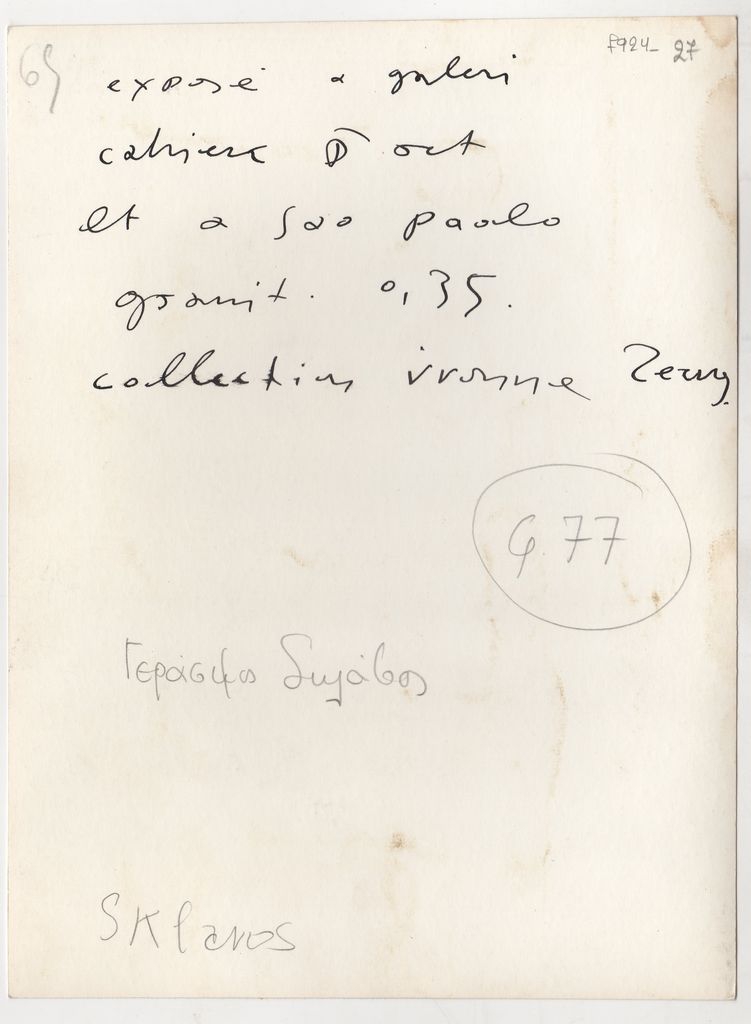 65
F924- 27
exposé a galeri
cahiers D ort
et a Sao paolo
granit. 0,35.
collection ivonne Zervɣ.
φ.77
Γεράσιμος Σκλάβος
SKlavos